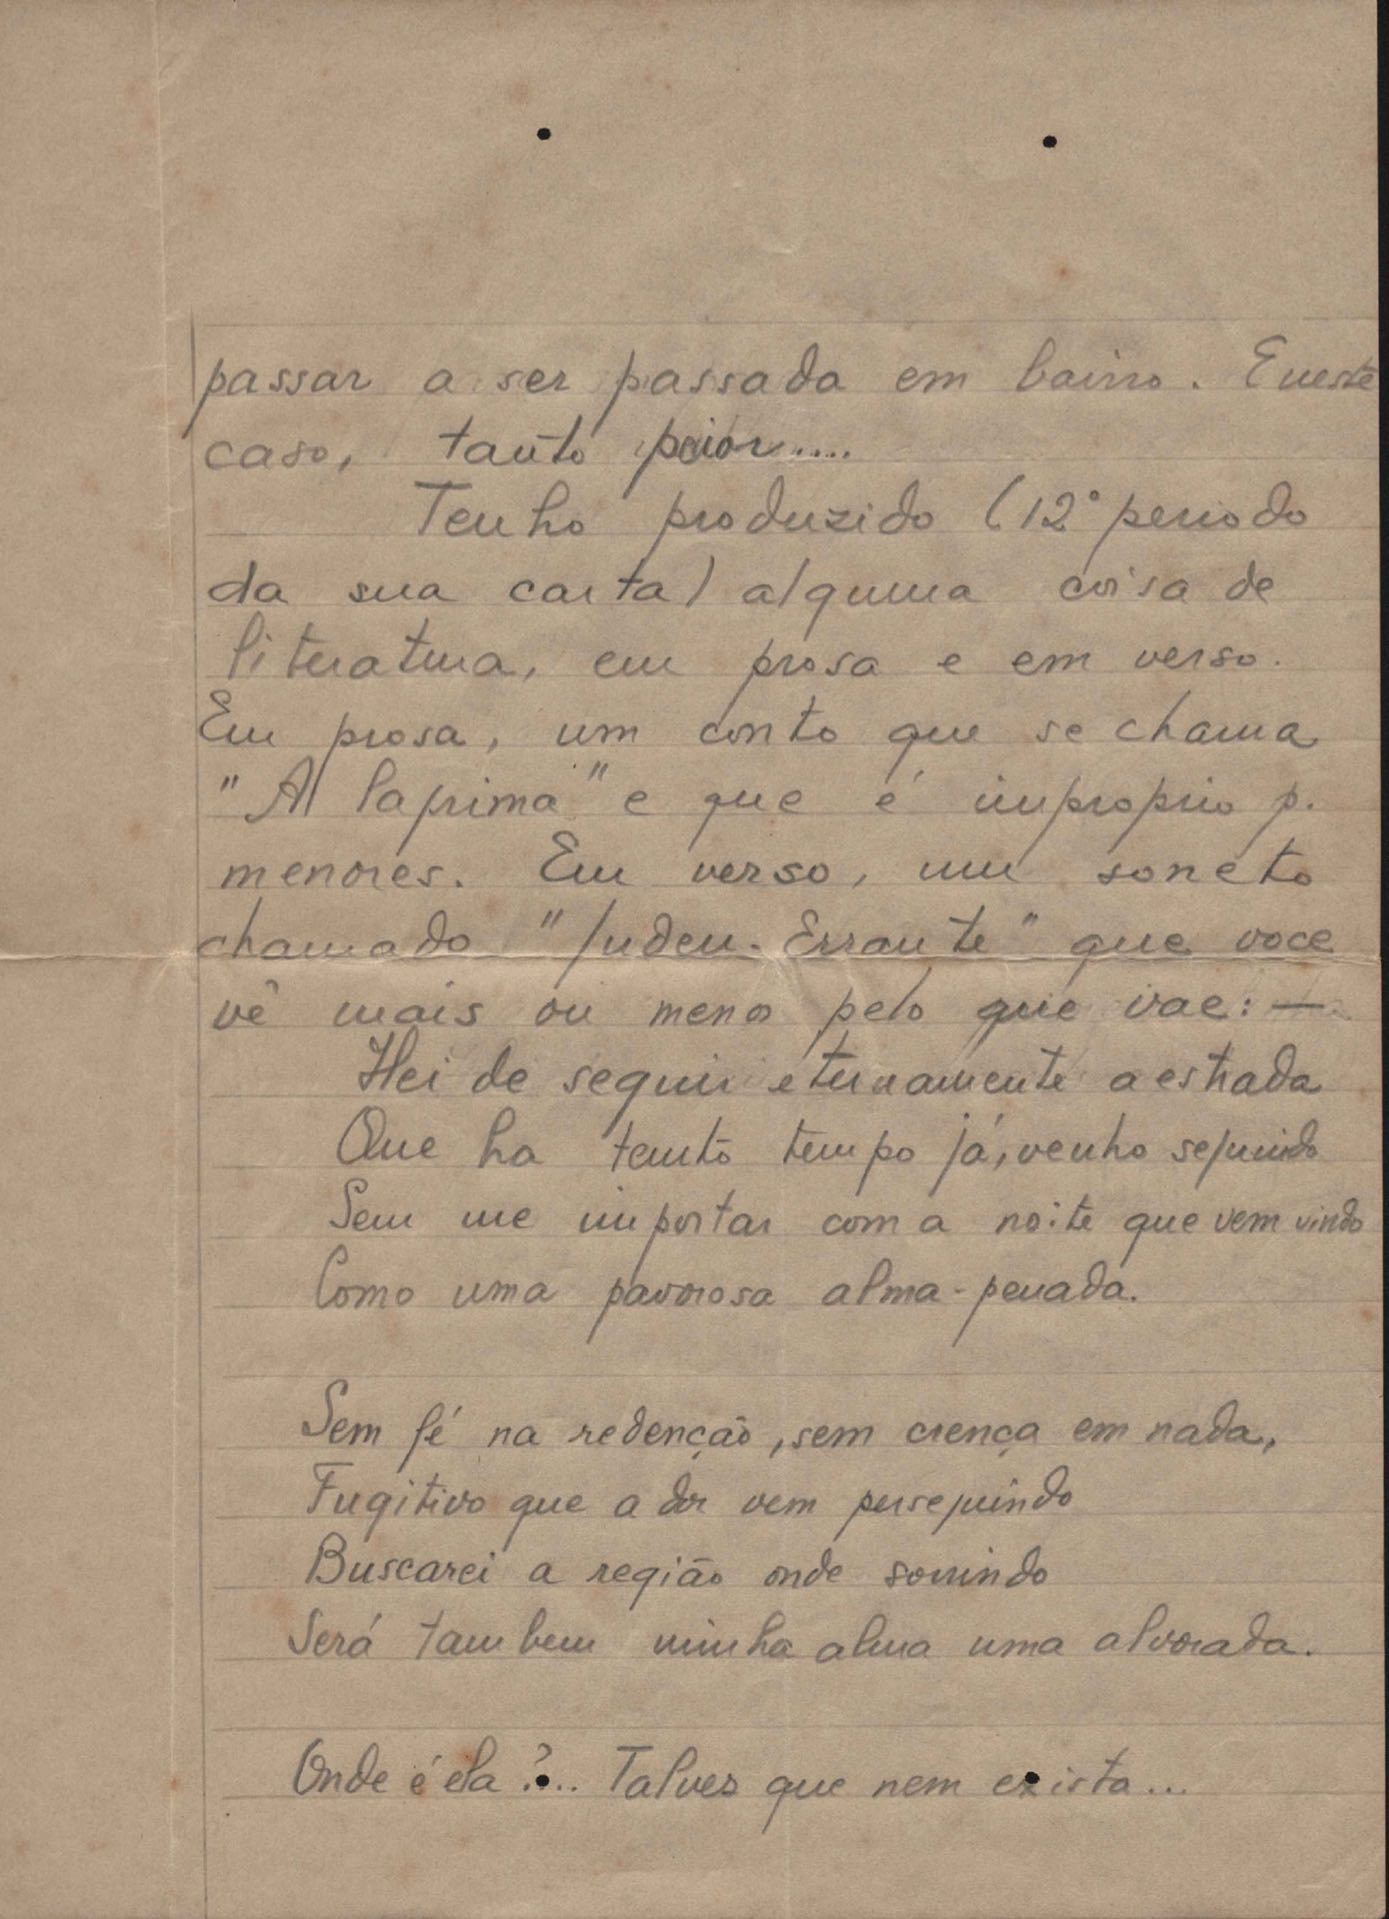 passar a ser passada em baixo. E neste
caso, tanto peior....
Tenho produzido (12° periodo
da sua carta) alguma coisa de
literatura, em prosa e em verso.
Em prosa, um conto que se chama
"A lagrima" e que é improprio p.
menores. Em verso, um soneto
chamado "Judeu-Errante" que voce
vê mais ou menos pelo que vae: —
Hei de seguir eternamente a estrada
Que ha tanto tempo já, venho seguindo
Sem me importar com a noite que vem vindo
Como uma pavorosa alma-penada.
Sem fé na redenção, sem crença em nada,
Fugitivo que a dor vem perseguindo
Buscarei a região onde sorrindo
Será tambem minha alma uma alvorada.
Onde é ela?... Talvez que nem exista...